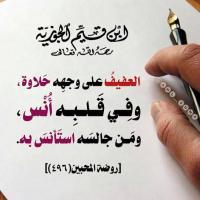 ابن قيم الجوزية
رحمه الله تعالى
العفيفُ على وجهِه حَلاوة،
وفِي قَلبِه أُنْس،
ومَن جالسَه استَأنسَ به.
[روضة المحبين(٤٩٦)]